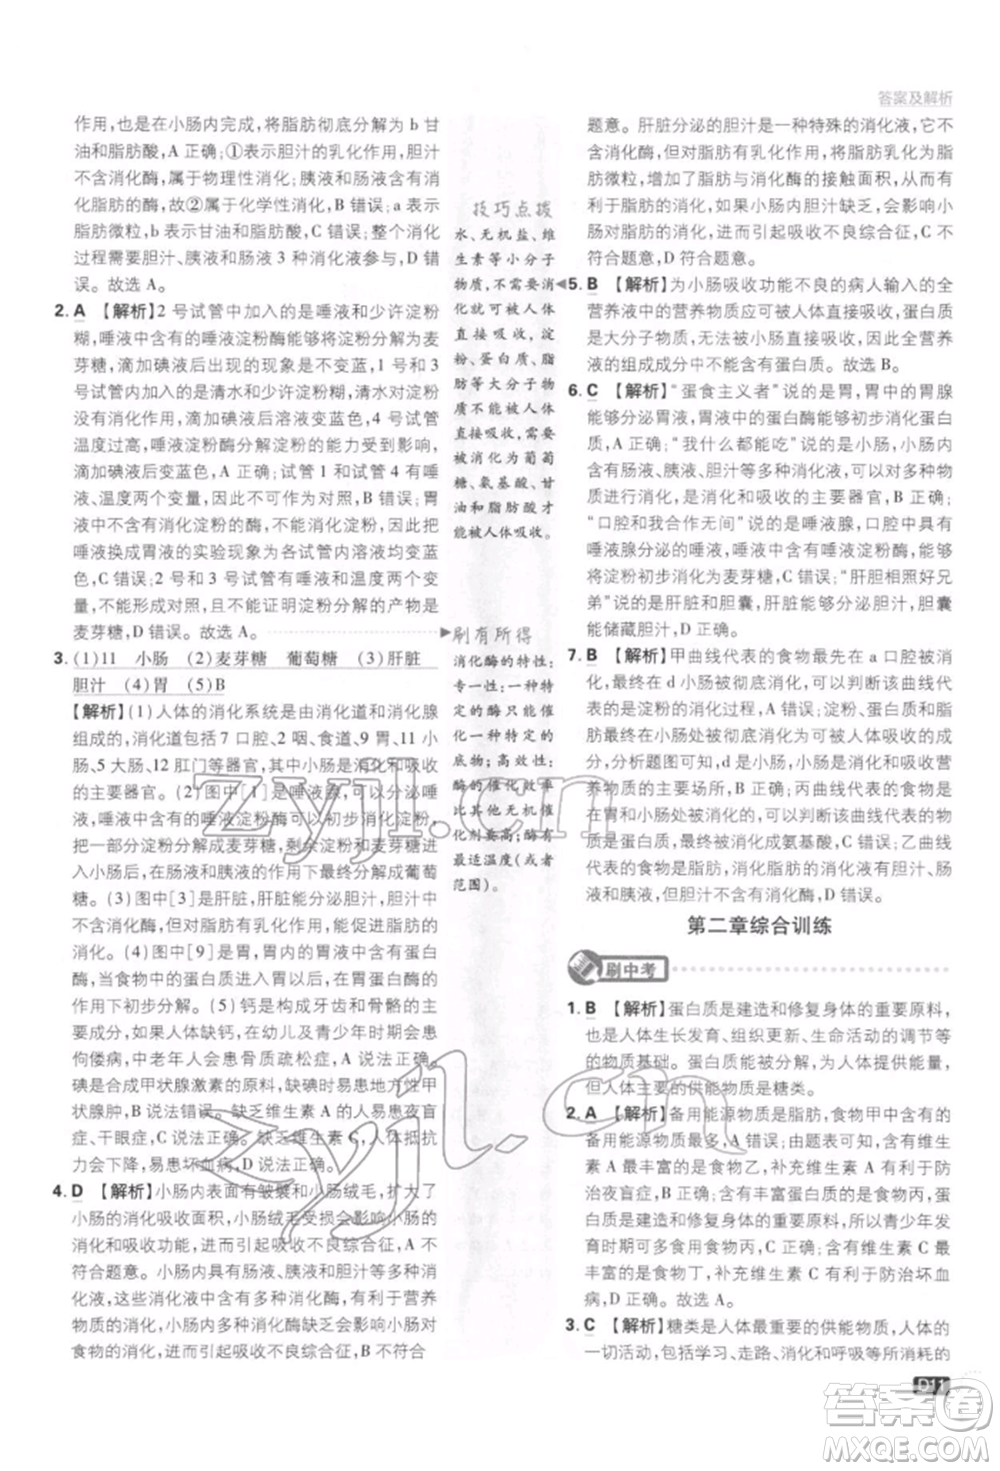 答案及解析
作用,也是在小肠内完成,将脂肪彻底分解为 b 甘
油和脂肪酸,A 正确;①表示胆汁的乳化作用,胆汁
不含消化酶,属于物理性消化;胰液和肠液含消化
脂肪的酶,故②属于化学性消化,B 错误;a 表示
脂肪微粒,b 表示甘油和脂肪酸,C 错误;整个消化
过程需要胆汁、胰液和肠液 3 种消化液参与,D 错
误。故选 A。
2. A 【解析】2 号试管中加入的是唾液和少许淀粉
糊,唾液中含有的唾液淀粉酶能将淀粉分解为麦
芽糖,滴加碘液后出现的现象是不变蓝,1 号和 3
号试管中加入的是清水和少许淀粉糊,清水对淀粉
没有消化作用,滴加碘液后溶液变蓝色,4 号试管
温度过高,唾液淀粉酶分解淀粉的能力受到影响,
滴加碘液后变蓝色,A 正确;试管 1 和试管 4 有唾
液、温度两个变量,不能作为对照,B 错误;胃
液中不含有消化淀粉的酶,不能消化淀粉,因此把
唾液换成胃液的实验现象是各试管内溶液均变蓝
色,C 错误;2 号和 3 号有唾液和温度两个变
量,不能形成对照,不能证明淀粉分解的产物是
麦芽糖,D 错误。故选 A。
3. (1)11 小肠 (2)麦芽糖 葡萄糖 (3)肝脏
胆汁 (4)胃 (5)B
【解析】(1)人体的消化系统是由消化道和消化腺
组成的,消化道包括 7 口腔、2 咽、食道、9 胃、11 小
肠、5 大肠、12 肛门等器官,其中小肠是消化和吸收
的主要器官。(2)图中[1]是唾液腺,可以分泌唾
液,唾液中的唾液淀粉酶可以初步消化淀粉,将一
部分淀粉分解成麦芽糖,剩余淀粉和麦芽糖进入
小肠后在肠液和胰液的作用下最终消化成葡萄
糖。(3)图中[3]是肝脏,肝脏能分泌胆汁,胆汁中
没有消化酶,但对脂肪有乳化作用,可以将脂肪变成脂肪微
粒。(4)图中[9]是胃,胃内的胃液中含有蛋白
酶,当食物中的蛋白质进入胃后,可在胃蛋白酶的
作用下初步分解。(5)钙是构成牙齿和骨骼的主要
成分,如果人体缺钙,在幼儿及青少年时期会患
佝偻病,中老年人会患骨质疏松症,A 正确。碘是
合成甲状腺激素的原料,人体缺碘易患地方性甲
状腺肿,B 错误。缺乏维生素 A 的人易患夜盲
症、干眼症,C 正确。缺乏维生素 C,人体抵抗
力会下降,易患坏血病,D 正确。
4. D 【解析】小肠内表面有皱襞和小肠绒毛,扩大了
小肠的消化吸收面积,小肠绒毛受损会影响小肠的
消化和吸收功能,进而引起吸收不良综合征,A 不符
合题意。小肠内具有肠液、胰液和胆汁等多种消
化液,这些消化液中含有多种消化酶,有利于营养
物质的消化,小肠中多种消化酶缺乏会影响小肠对
食物的消化,进而引起吸收不良综合征,B 不符合
技巧点拨
水、无机盐、维
生素等小分子
物质,不经消
化就可被人体
直接吸收,淀
粉、蛋白质、脂
肪等大分子物
质不能被人体
直接吸收,需要
被消化为葡萄
糖、氨基酸、甘
油和脂肪酸才
能被人体吸收。
刷有所得
消化酶的特性:
专一性:一种特
定的酶只能催
化一种特定的
底物;高效性:
酶的催化效率
比其他无机催
化剂要高;有
最适温度(或者
范围)。
题意。肝脏分泌的胆汁是一种特殊的消化液,它不
含消化酶,但对脂肪有乳化作用,能将脂肪变为
脂肪微粒,增加了脂肪与消化酶的接触面积,从而
有利于脂肪的消化,如果小肠内胆汁缺乏,会影响
小肠对脂肪的消化,进而引起吸收不良综合征,C 不
符合题意。
5. B 【解析】为小肠吸收功能不良的病人输入的全
营养液中的营养物质应可被人体直接吸收,蛋白质
是大分子物质,不能被人体直接吸收,因此全营养
液的组成成分中不能含有蛋白质。故选 B。
6. C 【解析】“蛋食主义者”说的是胃,胃中的胃腺
能够分泌胃液,胃液中的蛋白酶能够初步消化蛋白
质,A 正确;“我什么都能吃”说的是小肠,小肠内
含有肠液、胰液、胆汁等多种消化液,可以对多种物
质进行消化,是消化和吸收的主要器官,B 正确;
“口腔和我合作无间”说的是唾液腺,口腔中具有
唾液腺分泌的唾液,唾液中含有唾液淀粉酶,能够
将淀粉初步消化为麦芽糖,C 错误;“肝胆相照好兄
弟”说的是肝脏和胆囊,肝脏能够分泌胆汁,胆囊
能储藏胆汁,D 正确。
7. B 【解析】甲曲线代表的食物最先在 a 口腔被消
化,最终在 d 小肠被彻底消化,可以判断该曲线代
表的食物成分为淀粉,A 错误;淀粉、脂肪、
蛋白质是大分子物质,需要被消化为小分子后吸
收,分析题图可以判断甲、乙、丙代表的食物成分都
需要消化,B 正确;丙曲线代表的食物成分
在胃和小肠被消化,可以判断该曲线代表的食物
是蛋白质,最终被消化成氨基酸,C 错误;乙曲线
代表的食物成分是脂肪,参与脂肪消化的有胆汁、
肠液和胰液,但胆汁中不含有消化酶,D 错误。
第二章综合训练
刷中考
1. B 【解析】蛋白质是建造和修复身体的重要原料,
也是人体生长发育、组织更新、生命活动的调节等
的物质基础。蛋白质能被分解,为人体提供能量,
但人体主要的供能物质是糖类。
2. A 【解析】备用能源物质是脂肪,食物甲中含有的
糖类物质最多,A 错误;由题表可知,含有维生
素 A 最丰富的是食物乙,补充维生素 A 可防治夜盲
症,B 正确;含有丰富蛋白质的是食物丙,蛋白质
是建造和修复身体的重要原料,所以青少年生长发
育时期可多食用丙,C 正确;含有维生素 C 最
丰富的是食物丁,补充维生素 C 有利于防治坏血
病,D 正确。故选 A。
3. C 【解析】糖类是人体最重要的供能物质,人体的
一切活动,包括学习、走路、消化和呼吸等所消耗的
D11
zyjl.cn
zyjl.cn
答案圈
MXQE.COM